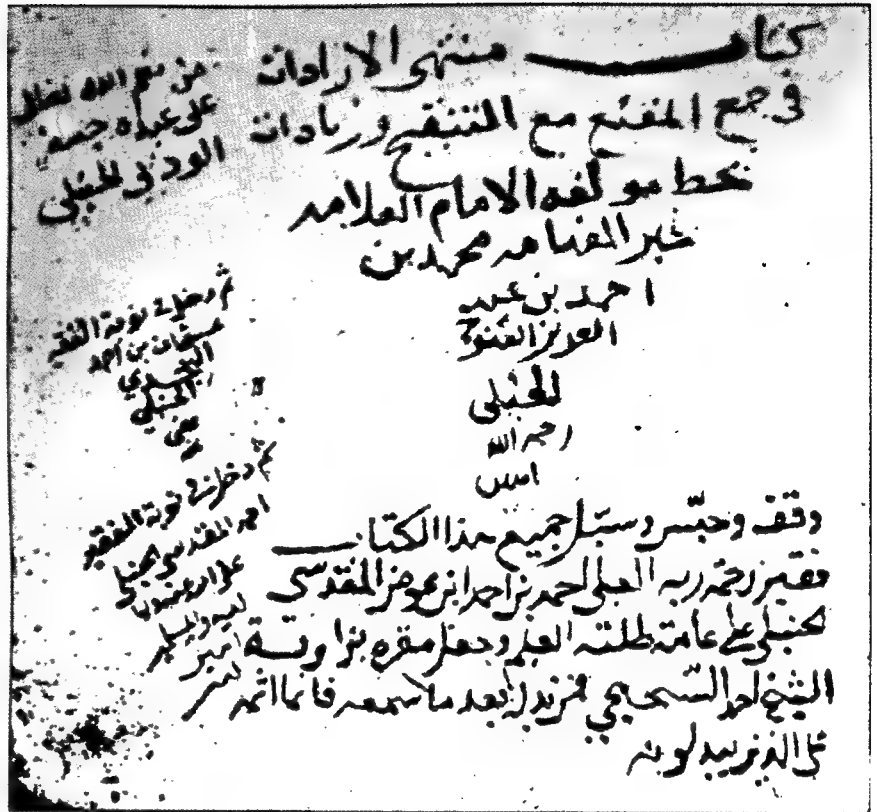 كتاب منتهى الارادات
في جمع المقنع مع التنقيح وزيادات
بخط مولفه الامام العلامه
محمد بن
احمد بن عبد
العزيز الفتوحي
الحنبلي
رحمه الله
امين
من نعم الله تعالى
على عبده
الحنبلي
ثم دخل في نوبة الفقير
عثمان بن احمد
النجدي
الحنبلي
عفي
عنه
ثم دخل في نوبة الفقير
احمد المقدسي الحنبلي
وقف وحبّس وسبّل جميع هذا الكتاب
فقير رحمة ربه العلي احمد بن احمد ابن عوض المقدسي
الحنبلي على عامة طلبة العلم وجعل مقره بزاوية
الشيخ احمد فمن بدله بعد ما سمعه فانما اثمه
على الذين يبدلونه